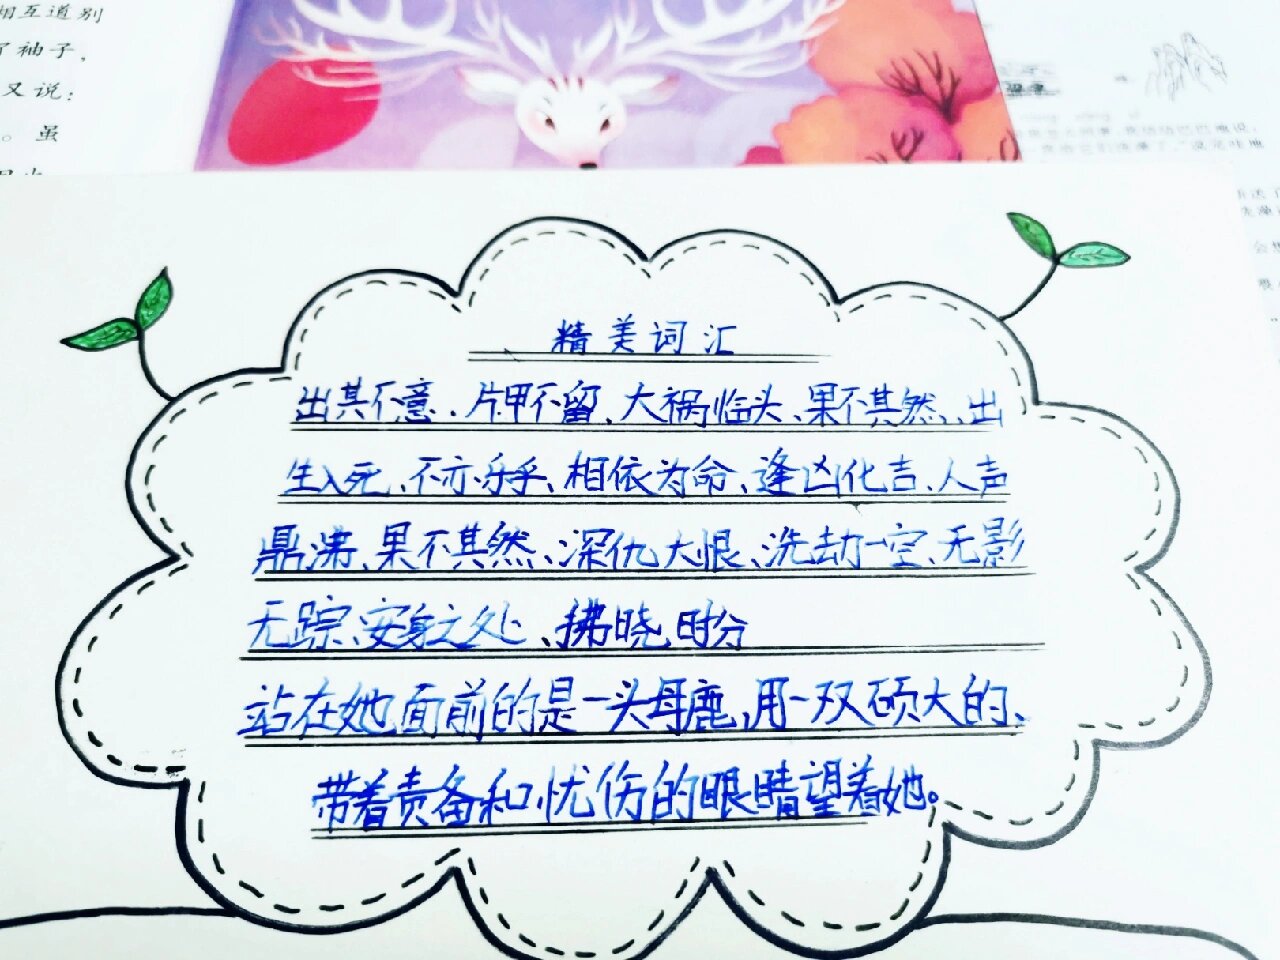 相互道别
了袖子，
又说：
。虽
精美词汇
出其不意、片甲不留、大祸临头、果不其然、出
生入死、不亦乐乎、相依为命、逢凶化吉、人声
鼎沸、果不其然、深仇大恨、洗劫一空、无影
无踪、安身之处、拂晓时分
站在她面前的是一头母鹿，用一双硕大的、
带着责备和忧伤的眼睛望着她。